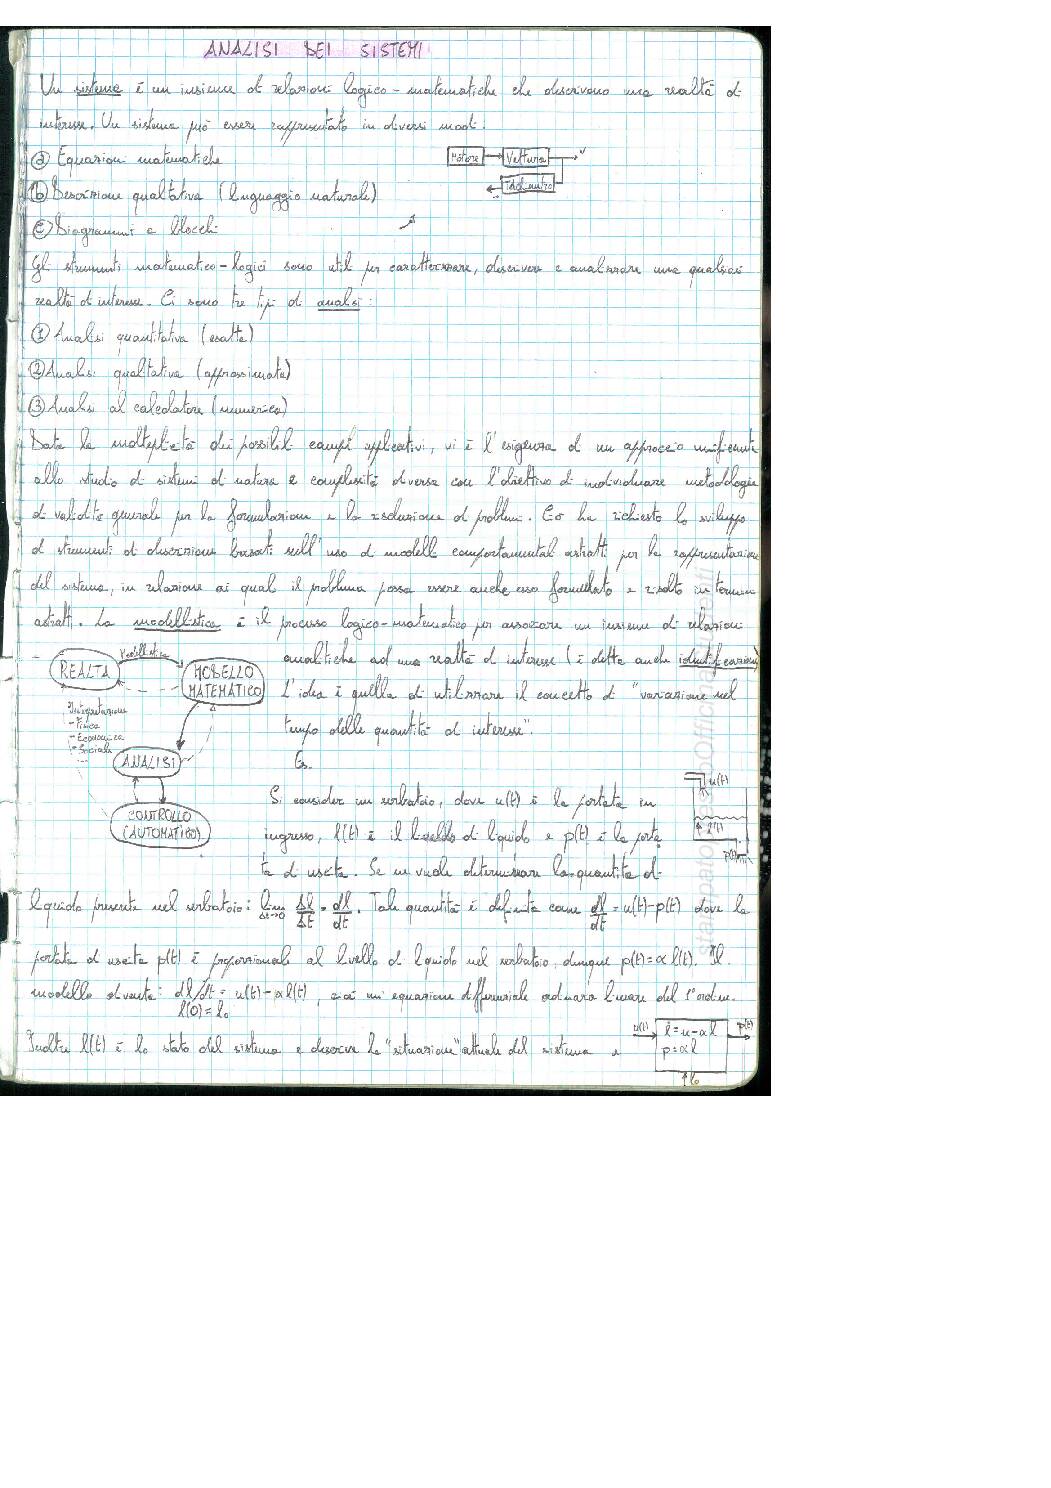 ANALISI DEI SISTEMI
Un sistema è un insieme di relazioni logico-matematiche che descrivono una realtà di
interesse. Un sistema può essere rappresentato in diversi modi:
ⓐ Equazioni matematiche
Motore Vettura v
tachimetro
ⓑ Descrizione qualitativa (linguaggio naturale)
ⓒ Diagrammi a blocchi
Gli strumenti matematico-logici sono utili per caratterizzare, descrivere e analizzare una qualsiasi
realtà di interesse. Ci sono tre tipi di analisi:
① Analisi quantitativa (esatta)
② Analisi qualitativa (approssimata)
③ Analisi al calcolatore (numerica)
Data la molteplicità dei possibili campi applicativi, vi è l'esigenza di un approccio unificante
allo studio di sistemi di natura e complessità diversa con l'obiettivo di individuare metodologie
di validità generale per la formulazione e la risoluzione di problemi. Ciò ha richiesto lo sviluppo
di strumenti di descrizione basati sull'uso di modelli comportamentali astratti per la rappresentazione
del sistema, in relazione ai quali il problema possa essere anche esso formulato e risolto in termini
astratti. La modellistica è il processo logico-matematico per associare un insieme di relazioni
analitiche ad una realtà di interesse (è detta anche identificazione)
L'idea è quella di utilizzare il concetto di "variazione nel
tempo delle quantità di interesse".
REALTÀ
Modellistica
MODELLO
MATEMATICO
Interpretazione
- Fisica
- Economica
- Sociale
ANALISI
CONTROLLO
(AUTOMATICO)
Es.
Si consideri un serbatoio, dove u(t) è la portata in
ingresso, l(t) è il livello di liquido e p(t) è la porta
ta di uscita. Se ne vuole determinare la quantità di
u(t)
l(t)
p(t)
liquido presente nel serbatoio: lim Δt→0 Δl/Δt = dl/dt. Tale quantità è definita come dl/dt = u(t)-p(t) dove la
portata di uscita p(t) è proporzionale al livello di liquido nel serbatoio, dunque p(t)=α l(t). Il
modello diventa: dl/dt = u(t)-α l(t), cioè un'equazione differenziale ordinaria lineare del 1° ordine.
l(0)=l₀
Inoltre l(t) è lo stato del sistema e descrive la "situazione" attuale del sistema e
u(t) l̇=u-αl p(t)
p=αl
l₀
stampato presso Officina